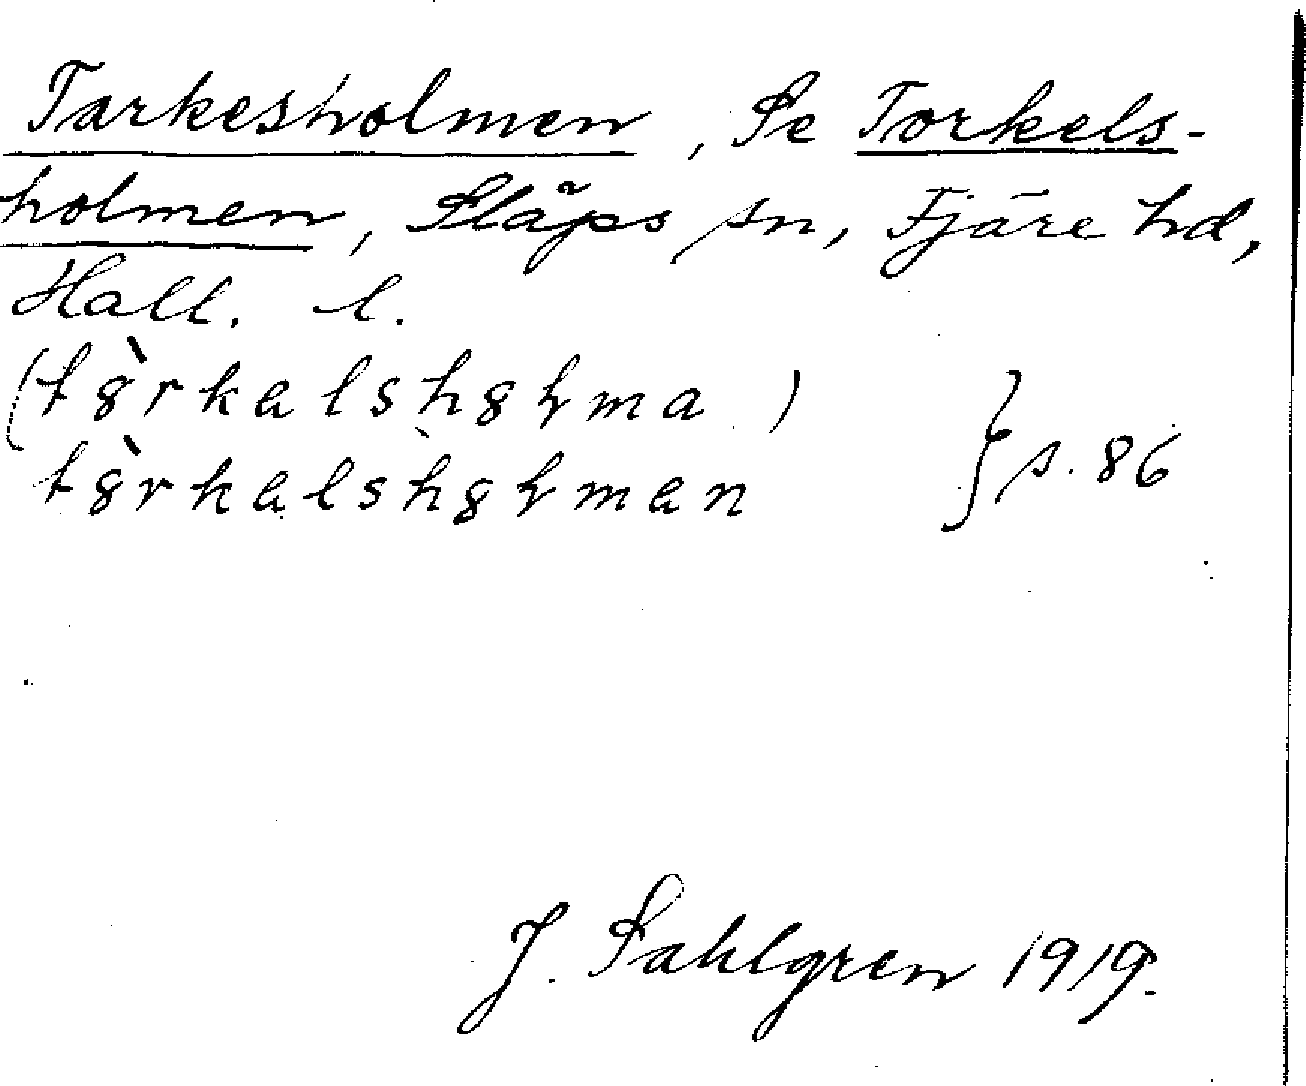 Tarkesholmen, Se Torkels-
holmen, Släps sn, Fjäre hd,
Hall. l.
(tȣ̀rkalshȣɽma)
tȣ̀rkalshȣɽman } s. 86
J. Sahlgren 1919.